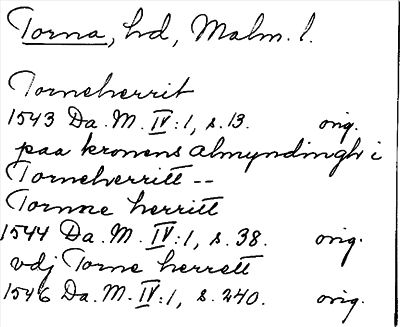 Torna, hd, Malm. l.
Torneherrit
1543 Da. M. IV:1, s. 13. orig.
paa kronens almyndingh i
Torneherritt --
Tornne herritt
1544 Da. M. IV:1, s. 38. orig.
vdj Torne herrett
1546 Da. M. IV:1, s. 240. orig.